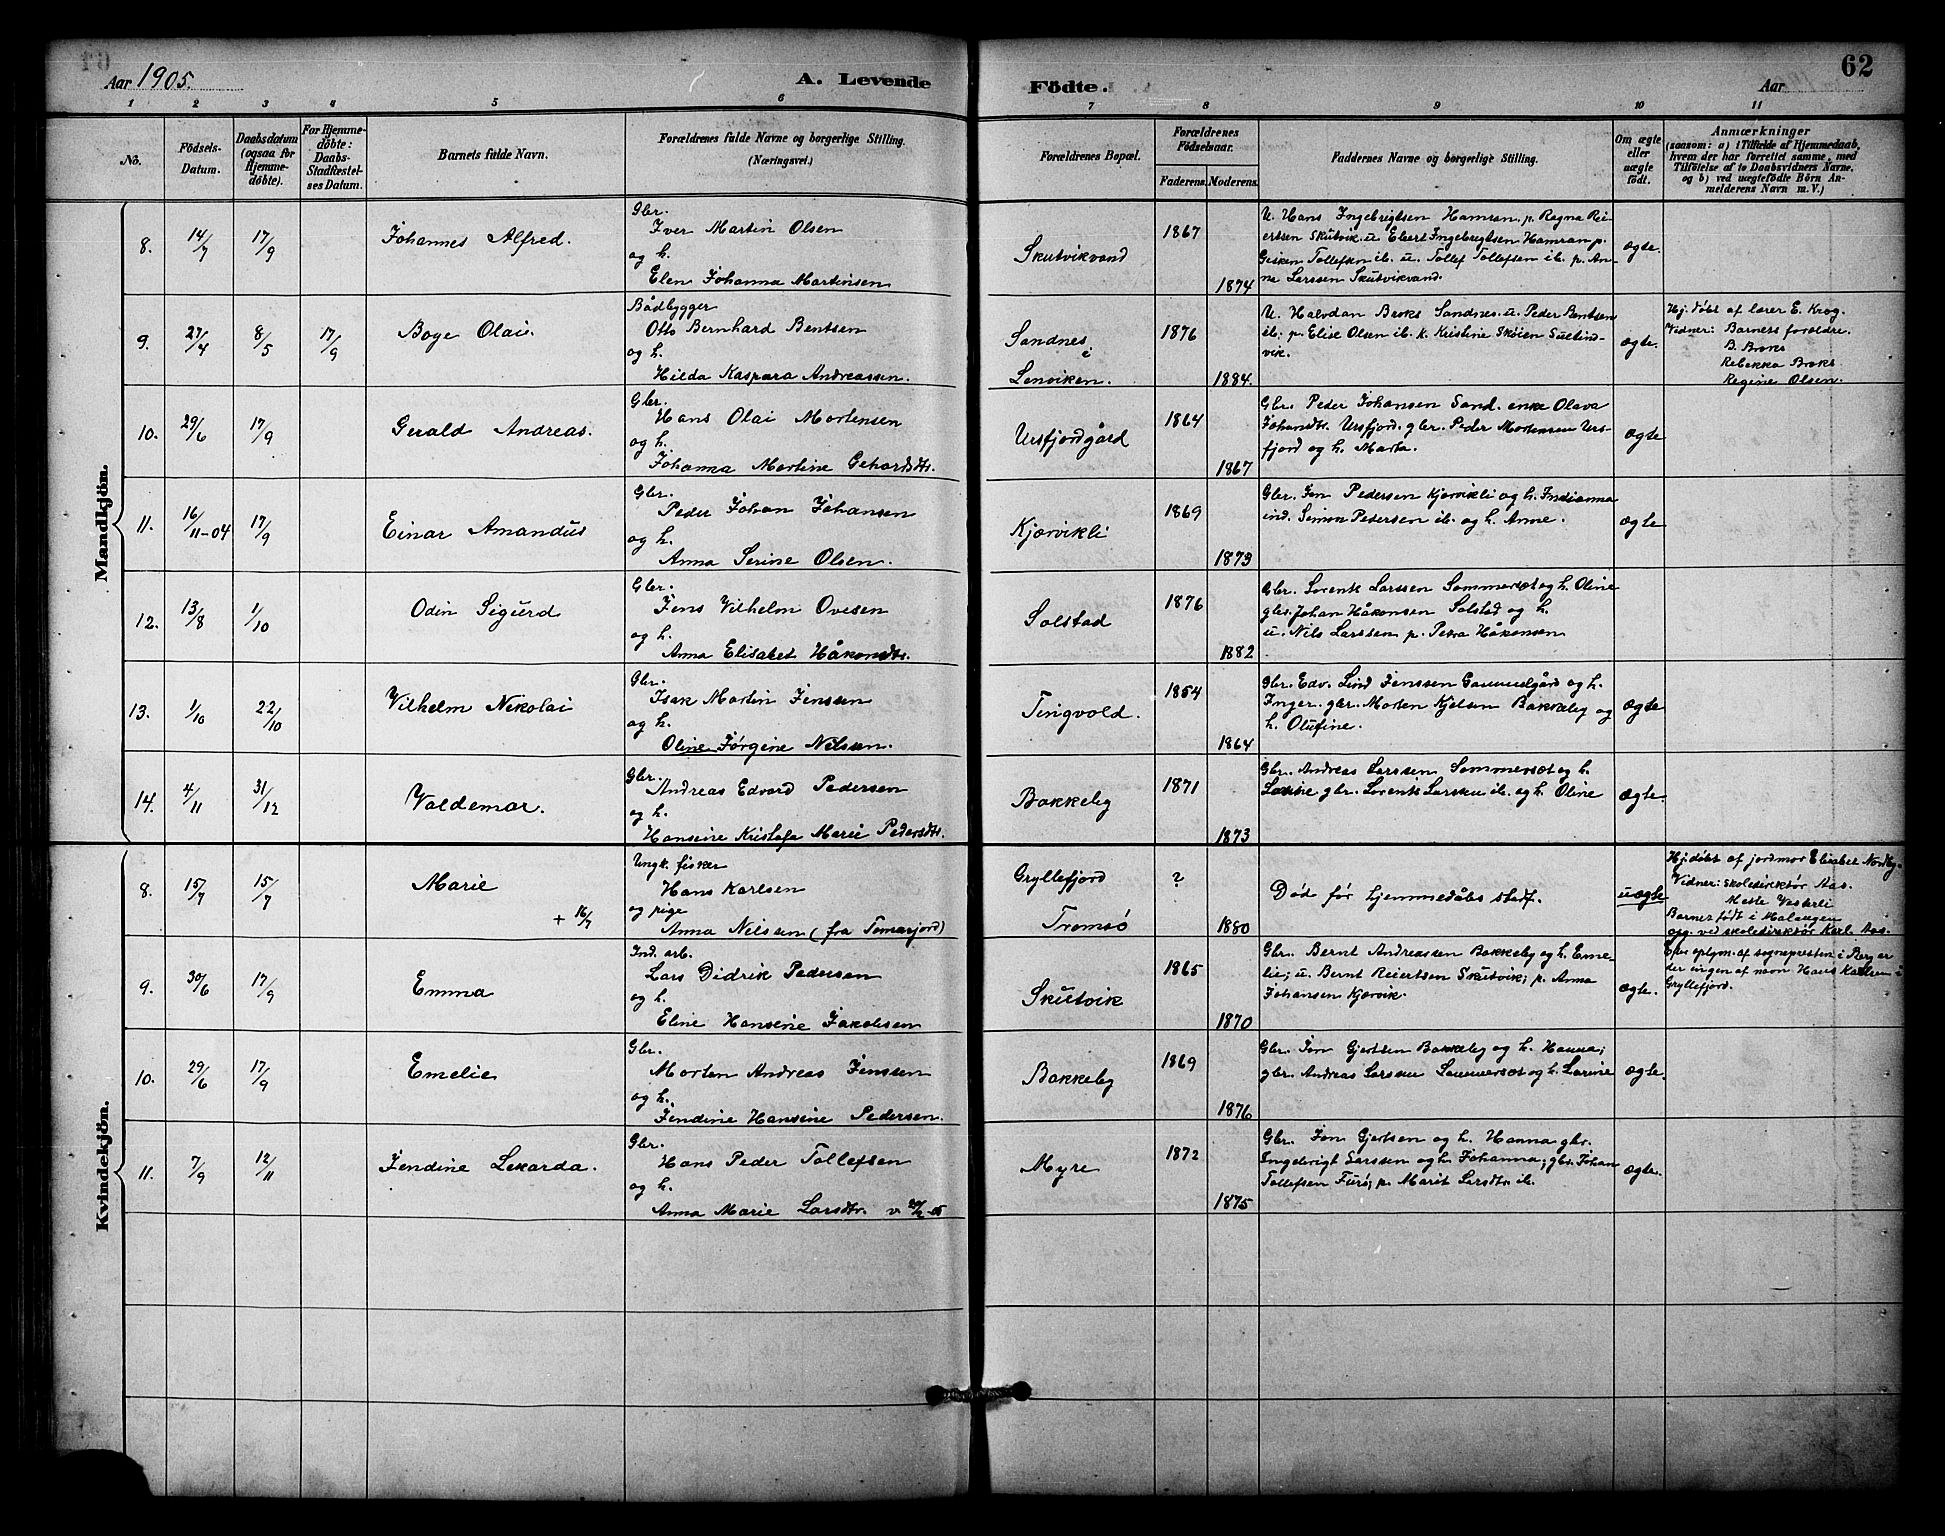 Aar 1905.
A. Levende
Födte.
Aar
62
1 2 3 4 5 6 7 8 9 10 11
No.
Födsels-
Datum.
Daabsdatum
(ogsaa for
Hjemme-
döbte).
For Hjemme-
döbte:
Daabs-
Stadfæstel-
ses Datum.
Barnets fulde Navn.
Forældrenes fulde Navne og borgerlige Stilling.
(Næringsvei.)
Forældrenes Bopæl.
Forældrenes
Födselsaar.
Faderens. Moderens.
Faddernes Navne og borgerlige Stilling.
Om ægte
eller
uægte
födt.
Anmærkninger
(saasom: a) i Tilfælde af Hjemmedaab,
hvem der har forrettet samme, med
Tilföielse af to Daabsvidners Navne,
og b) ved uægtefödte Börn An-
melderens Navn m. V.)
Mandkjön.
8. 14/7 17/9
Johannes Alfred.
Gbr.
Iver Martin Olsen
og h.
Elen Johanna Martinsen
Skutvikvand
1867
1874
U. Hans Ingebrigtsen Hamran. p. Ragna Rei-
ertsen Skutvik. u. Ebert Ingebrigtsen Hamran p.
Gisken Tollefsen ib. u. Tollef Tollefsen ib. p. An-
ne Larssen Skutvikvand.
ægte.
9. 27/4 8/5 17/9
Boye Olai.
Bådbygger
Otto Bernhard Bentsen
og h.
Hilda Kaspara Andreassen.
Sandnes
i
Lenviken.
1876
1884.
U. Halvdan Broks Sandnes. u. Peder Bentsen
ib; p. Elise Olsen ib. k. Kristine Skøien Sultind-
vik.
ægte.
Hj. døbt af lærer E. Krog.
Vidner: Barnets foreldre.
B. Broks
Rebekka Broks
Regine Olsen.
10. 29/6 17/9
Gerald Andreas.
Gbr.
Hans Olai Mortensen
og h.
Johanna Martine Gehardsdtr.
Ursfjordgård
1864
1867
Gbr. Peder Johansen Sand. enke Olava
Johandtr. Ursfjord. gbr. Peder Mortensen Urs-
fjord og h. Marta.
ægte
11. 16/11-04 17/9
Einar Amandus
Gbr.
Peder Johan Johansen
og h.
Anna Serine Olsen.
Kjærvikli
1869
1873
Gbr. Jon Pedersen Kjærvikli og h. Indianna
ind. Simon Pedersen ib. og h. Anne.
ægte
12. 13/8 1/10
Odin Sigurd
Gbr.
Jens Vilhelm Ovesen
og h.
Anna Elisabet Håkondtr.
Solstad
1876
1882
Gbr. Lorents Larssen Sommersæt og h. Oline
gbr. Johan Håkonsen Solstad og h.
u. Nils Larssen p. Petra Håkonsen
13. 1/10 22/10
Vilhelm Nikolai
Gbr.
Isak Martin Jenssen
og h.
Oline Jørgine Nilssen.
Tingvold.
1854
1864
Gbr. Edv. Lind Jenssen Gammelgård og h.
Inger. gbr. Morten Kjelsen Bakkeby og
h. Olufine.
ægte
14. 4/11 31/12
Valdemar.
Gbr.
Andreas Edvard Pedersen
og h.
Hansine Kristofa Marie Pedersdtr.
Bakkeby
1871
1873
Gbr. Andreas Larssen Sommersæt og h.
Larine gbr. Lorents Larssen ib. og h. Oline
ægte.
Kvindekjön.
8. 15/7 15/7
Marie
+ 16/7
Ungk. fisker
Hans Karlsen
og pige
Anna Nilssen (fra Tomasjord)
Gryllefjord
Tromsø
?
1880
Død før hjemmedåbs stadf.
uægte
Hj. døbt af jordmor Elisabet Nordby.
Vidner: skoledirektør Aas.
Mette Vesterli
Barnet født i Malangen
opg. ved skoledirektør Karl Aas.
9. 30/6 17/9
Emma
Ind. arb.
Lars Didrik Pedersen
og h.
Eline Hansine Jakobsen
Skutvik
1865
1870
Gbr. Bernt Andreassen Bakkeby og h. Eme-
lie; u. Bernt Reiertsen Skutvik; p. Anna
Johansen Kjærvik.
ægte.
Efter oplysn. af sognepresten i Berg er
der ingen af navn Hans Karlsen i
Gryllefjord.
10. 29/6 17/9
Emelie
Gbr.
Morten Andreas Jenssen
og h.
Jendine Hansine Pedersen.
Bakkeby
1869
1876
Gbr. Jon Gjertsen Bakkeby og h. Hanna;
gbr. Andreas Larssen Sommersæt og h. Larine
ægte.
11. 7/9 12/11
Jendine Lekarda.
Gbr.
Hans Peder Tollefsen
og h.
Anna Marie Larsdtr.
Myre
1872
1875
Gbr. Jon Gjertsen og h. Hanna gbr.
Ingebrigt Larssen og h. Johanna; gbr. Johan
Tollefsen Furø; p. Marit Larsdtr. ib.
ægte.